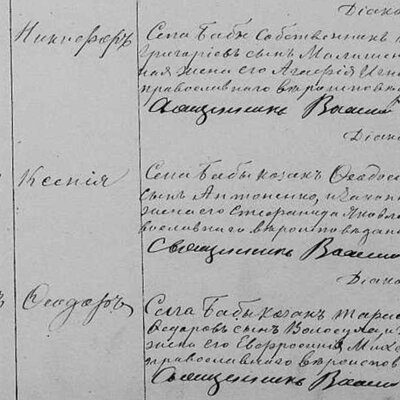 Діако
Никифоръ
Села Бабы Собственникъ
Григоріевъ сынъ
ная жена его Агафія Игна
православнаго вѣроисповѣ
Священникъ Васил
Діако
Ксенія
Села Бабы козакъ Ѳеодос
сынъ Антоненко, и закон
жена его Стефанида Яковл
вославнаго вѣроисповѣдані
Священникъ Васил
Діако
Ѳеодоръ
Села Бабы козакъ Тарас
Ѳедоровъ сынъ
жена его Евфросинія Миха
православнаго вѣроиспов
Священникъ Васил